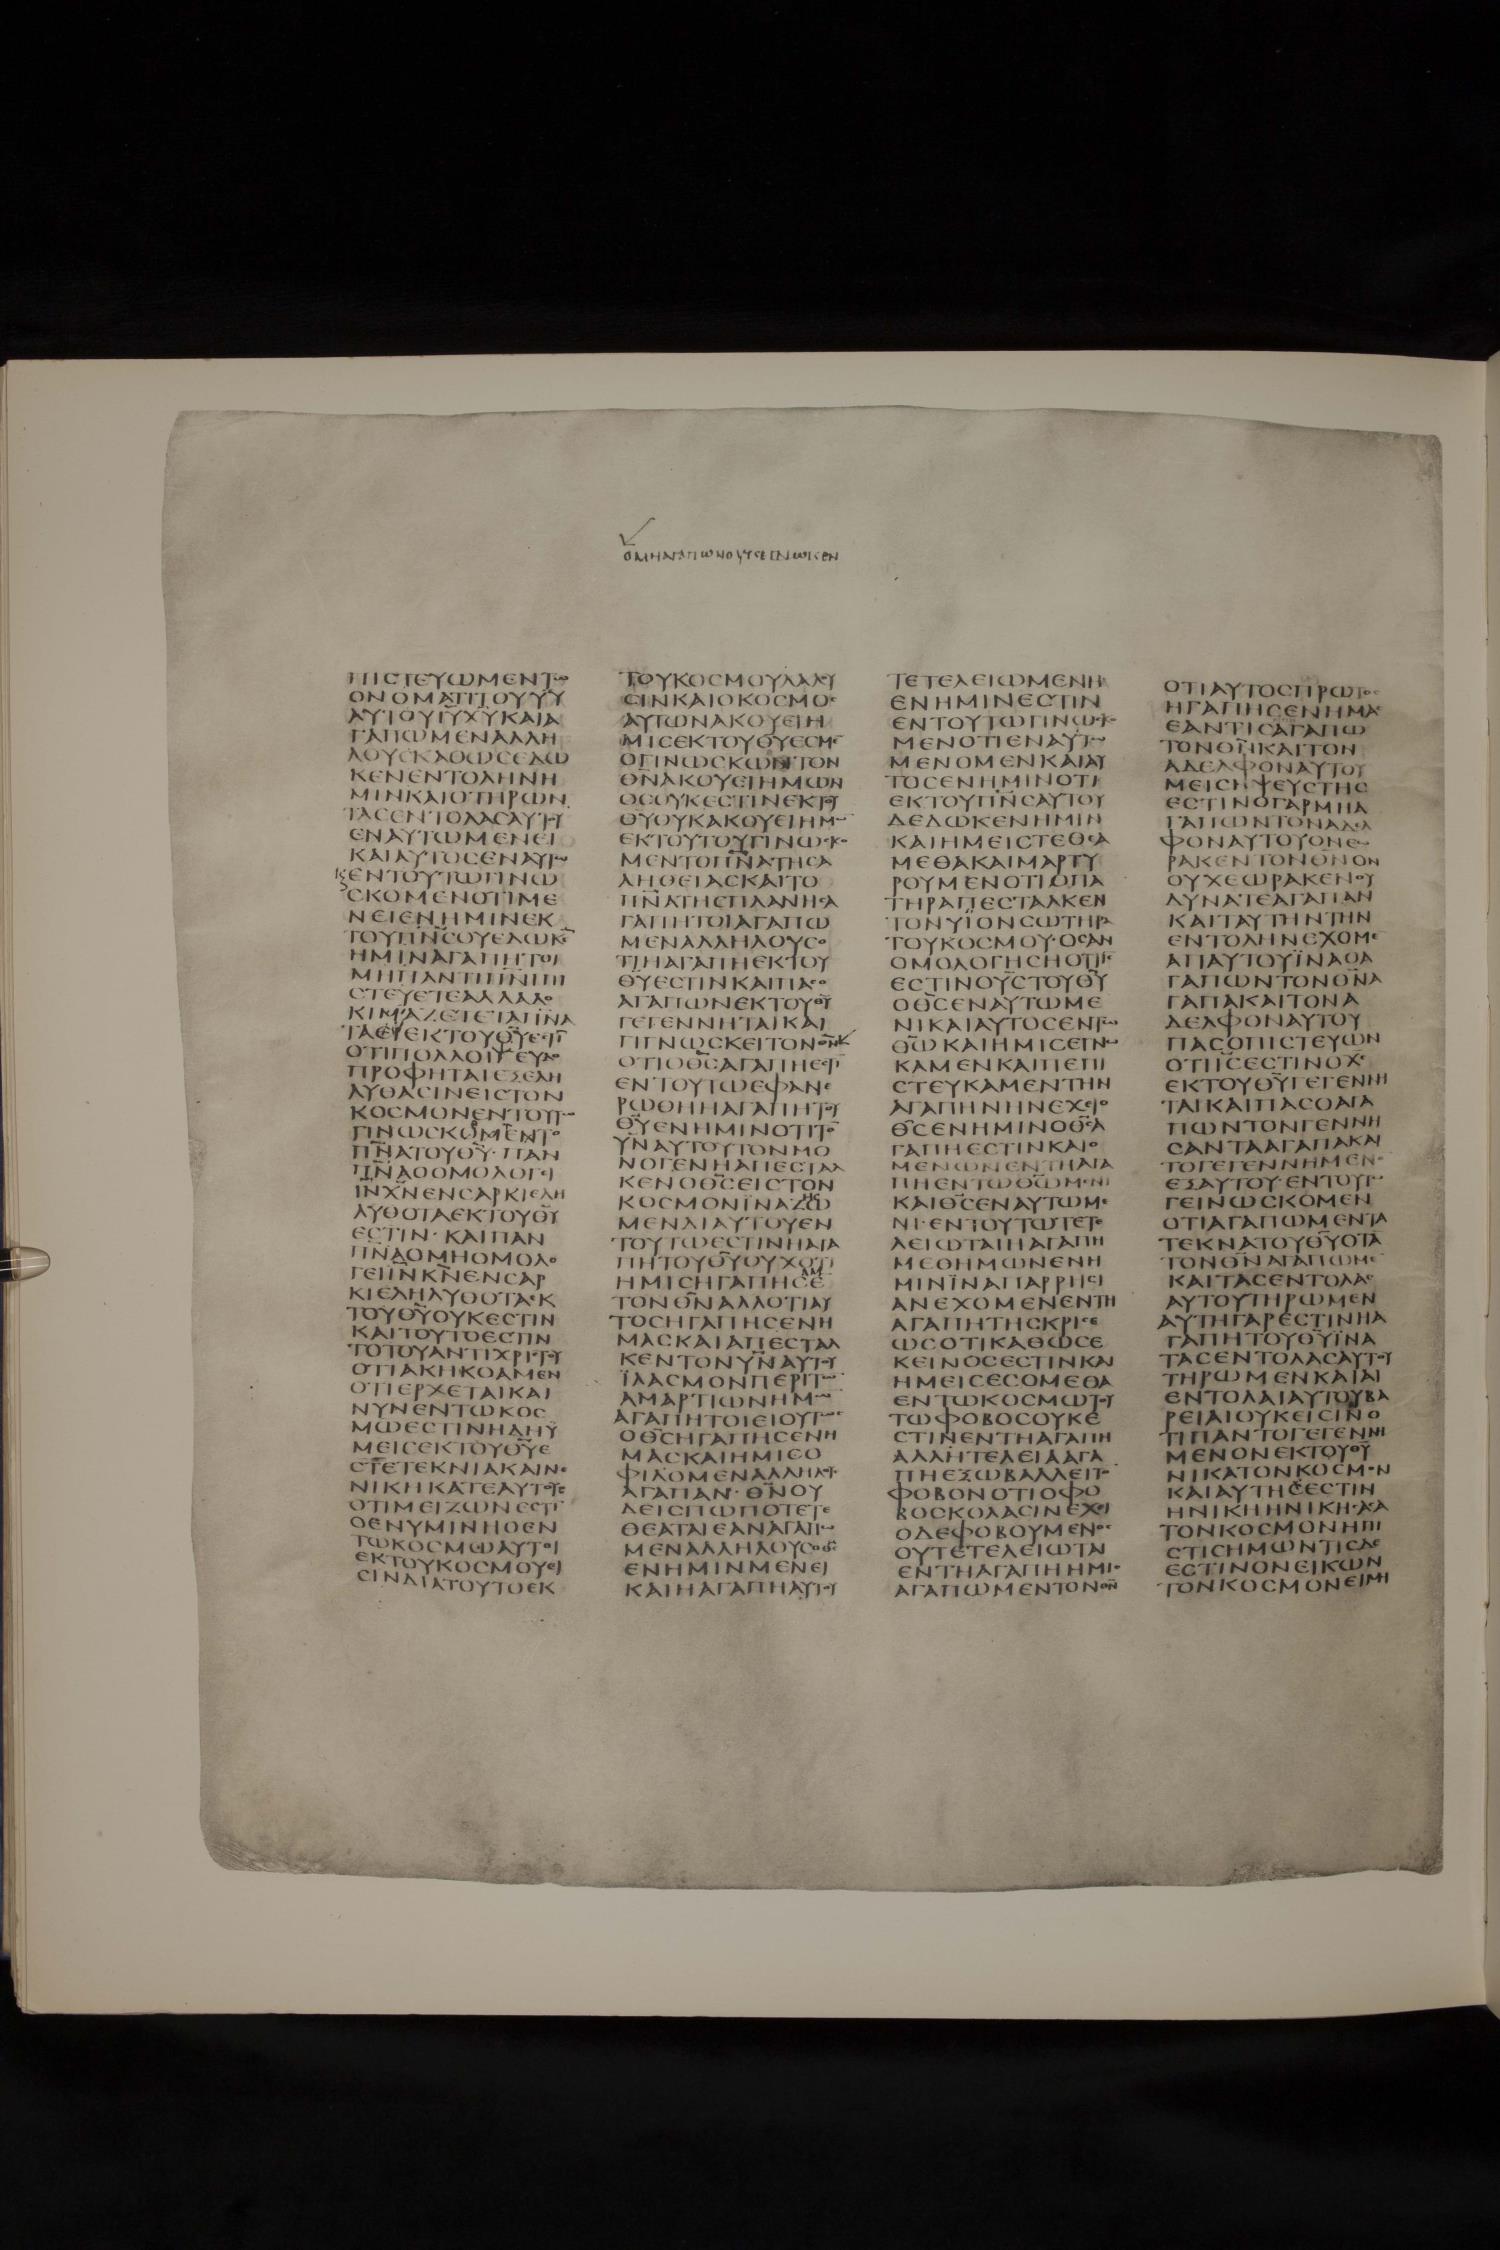 ΟΜΗΑΓΑΠΩΝΟΥΚΕΓΝΩΚΕΝ
ΠΙCΤΕΥΩΜΕΝΤΩ
ΟΝΟΜΑΤΙΤΟΥΥΥ
ΑΥΤΟΥΙΥΧΥΚΑΙΑ
ΓΑΠΩΜΕΝΑΛΛΗ
ΛΟΥCΚΑΘΩCΕΔΩ
ΚΕΝΕΝΤΟΛΗΝΗ
ΜΙΝΚΑΙΟΤΗΡΩΝ
ΤΑCΕΝΤΟΛΑCΑΥΤΟΥ
ΕΝΑΥΤΩΜΕΝΕΙ
ΚΑΙΑΥΤΟCΕΝΑΥΤΩ
ΚΕΝΤΟΥΤΩΓΙΝΩ
CΚΟΜΕΝΟΤΙΜΕ
ΝΕΙΕΝΗΜΙΝΕΚ
ΤΟΥΠΝCΟΥΕΔΩΚΕ
ΗΜΙΝΑΓΑΠΗΤΟΙ
ΜΗΠΑΝΤΙΠΝΙΠΙ
CΤΕΥΕΤΕΑΛΛΑΔΟ
ΚΙΜΑΖΕΤΕΤΑΠΝΑ
ΤΑΕΙΕΚΤΟΥΘΥΕCΤΙ
ΟΤΙΠΟΛΛΟΙΨΕΥΔΟ
ΠΡΟΦΗΤΑΙΕΞΕΛΗ
ΛΥΘΑCΙΝΕΙCΤΟΝ
ΚΟCΜΟΝΕΝΤΟΥΤΩ
ΓΙΝΩCΚΟΜΕΝΤΟ
ΠΝΑΤΟΥΘΥ·ΠΑΝ
ΠΝΑΟΟΜΟΛΟΓΕΙ
ΙΝΧΝΕΝCΑΡΚΙΕΛΗ
ΛΥΘΟΤΑΕΚΤΟΥΘΥ
ΕCΤΙΝ·ΚΑΙΠΑΝ
ΠΝΑΟΜΗΟΜΟΛΟ
ΓΕΙΙΝΚΝΕΝCΑΡ
ΚΙΕΛΗΛΥΘΟΤΑΕΚ
ΤΟΥΘΥΟΥΚΕCΤΙΝ
ΚΑΙΤΟΥΤΟΕCΤΙΝ
ΤΟΤΟΥΑΝΤΙΧΡΙCΤΟΥ
ΟΤΙΑΚΗΚΟΑΜΕΝ
ΟΤΙΕΡΧΕΤΑΙΚΑΙ
ΝΥΝΕΝΤΩΚΟC
ΜΩΕCΤΙΝΗΔΗΫ
ΜΕΙCΕΚΤΟΥΘΥΕ
CΤΕΤΕΚΝΙΑΚΑΙΝΕ
ΝΙΚΗΚΑΤΕΑΥΤΟΥC
ΟΤΙΜΕΙΖΩΝΕCΤΙ
ΟΕΝΥΜΙΝΗΟΕΝ
ΤΩΚΟCΜΩΑΥΤΟΙ
ΕΚΤΟΥΚΟCΜΟΥΕΙ
CΙΝΔΙΑΤΟΥΤΟΕΚ
ΤΟΥΚΟCΜΟΥΛΑΛΟΥ
CΙΝΚΑΙΟΚΟCΜΟC
ΑΥΤΩΝΑΚΟΥΕΙΗ
ΜΙCΕΚΤΟΥΘΥΕCΜΕ
ΟΓΙΝΩCΚΩΝΤΟΝ
ΘΝΑΚΟΥΕΙΗΜΩΝ
ΟCΟΥΚΕCΤΙΝΕΚΤΟΥ
ΘΥΟΥΚΑΚΟΥΕΙΗΜΩ
ΕΚΤΟΥΤΟΥΓΙΝΩCΚΟ
ΜΕΝΤΟΠΝΑΤΗCΑ
ΛΗΘΕΙΑCΚΑΙΤΟ
ΠΝΑΤΗCΠΛΑΝΗCΑ
ΓΑΠΗΤΟΙΑΓΑΠΩ
ΜΕΝΑΛΛΗΛΟΥCΟ
ΤΙΗΑΓΑΠΗΕΚΤΟΥ
ΘΥΕCΤΙΝΚΑΙΠΑCΟ
ΑΓΑΠΩΝΕΚΤΟΥΘΥ
ΓΕΓΕΝΝΗΤΑΙΚΑΙ
ΓΙΓΝΩCΚΕΙΤΟΝΘΝ
ΟΤΙΟΘCΑΓΑΠΗΕCΤΙ
ΕΝΤΟΥΤΩΕΦΑΝΕ
ΡΩΘΗΗΑΓΑΠΗΤΟΥ
ΘΥΕΝΗΜΙΝΟΤΙΤΟ
ΥΝΑΥΤΟΥΤΟΝΜΟ
ΝΟΓΕΝΗΑΠΕCΤΑΛ
ΚΕΝΟΘCΕΙCΤΟΝ
ΚΟCΜΟΝΪΝΑΖΗCΩ
ΜΕΝΔΙΑΥΤΟΥΕΝ
ΤΟΥΤΩΕCΤΙΝΗΑΓΑ
ΠΗΤΟΥΘΥΟΥΧΟΤΙ
ΗΜΙCΗΓΑΠΗCΑΜΕ
ΤΟΝΘΝΑΛΛΟΤΙΑΥ
ΤΟCΗΓΑΠΗCΕΝΗ
ΜΑCΚΑΙΑΠΕCΤΑΛ
ΚΕΝΤΟΝΥΝΑΥΤΟΥ
ΪΛΑCΜΟΝΠΕΡΙΤΩ
ΑΜΑΡΤΙΩΝΗΜΩ
ΑΓΑΠΗΤΟΙΕΙΟΥΤΩC
ΟΘCΗΓΑΠΗCΕΝΗ
ΜΑCΚΑΙΗΜΙCΟ
ΦΙΛΟΜΕΝΑΛΛΗΛΟΥC
ΑΓΑΠΑΝ·ΘΝΟΥ
ΔΕΙCΠΩΠΟΤΕΤΕ
ΘΕΑΤΑΙΕΑΝΑΓΑΠΩ
ΜΕΝΑΛΛΗΛΟΥCΟΘC
ΕΝΗΜΙΝΜΕΝΕΙ
ΚΑΙΗΑΓΑΠΗΑΥΤΟΥ
ΤΕΤΕΛΕΙΩΜΕΝΗ
ΕΝΗΜΙΝΕCΤΙΝ
ΕΝΤΟΥΤΩΓΙΝΩCΚΟ
ΜΕΝΟΤΙΕΝΑΥΤΩ
ΜΕΝΟΜΕΝΚΑΙΑΥ
ΤΟCΕΝΗΜΙΝΟΤΙ
ΕΚΤΟΥΠΝCΑΥΤΟΥ
ΔΕΔΩΚΕΝΗΜΙΝ
ΚΑΙΗΜΕΙCΤΕΘΕΑ
ΜΕΘΑΚΑΙΜΑΡΤΥ
ΡΟΥΜΕΝΟΤΙΟΠΑ
ΤΗΡΑΠΕCΤΑΛΚΕΝ
ΤΟΝΥΪΟΝCΩΤΗΡΑ
ΤΟΥΚΟCΜΟΥ·ΟCΑΝ
ΟΜΟΛΟΓΗCΗΟΤΙΙC
ΕCΤΙΝΟΥCΤΟΥΘΥ
ΟΘCΕΝΑΥΤΩΜΕ
ΝΙΚΑΙΑΥΤΟCΕΝΤΩ
ΘΩΚΑΙΗΜΙCΕΓΝΩ
ΚΑΜΕΝΚΑΙΠΕΠΙ
CΤΕΥΚΑΜΕΝΤΗΝ
ΑΓΑΠΗΝΗΝΕΧΕΙΟ
ΘCΕΝΗΜΙΝΟΘCΑ
ΓΑΠΗΕCΤΙΝΚΑΙΟ
ΜΕΝΩΝΕΝΤΗΑΓΑ
ΠΗΕΝΤΩΘΩΜΕΝΙ
ΚΑΙΘCΕΝΑΥΤΩΜΕ
ΝΙ·ΕΝΤΟΥΤΩΤΕΤΕ
ΛΕΙΩΤΑΙΗΑΓΑΠΗ
ΜΕΘΗΜΩΝΕΝΗ
ΜΙΝΪΝΑΠΑΡΡΗCΙ
ΑΝΕΧΟΜΕΝΕΝΤΗ
ΑΓΑΠΗΤΗCΚΡΙCΕ
ΩCΟΤΙΚΑΘΩCΕ
ΚΕΙΝΟCΕCΤΙΝΚΑΙ
ΗΜΕΙCΕCΟΜΕΘΑ
ΕΝΤΩΚΟCΜΩΤΟΥ
ΤΩΦΟΒΟCΟΥΚΕ
CΤΙΝΕΝΤΗΑΓΑΠΗ
ΑΛΛΗΤΕΛΕΙΑΑΓΑ
ΠΗΕΞΩΒΑΛΛΕΙΤΟ
ΦΟΒΟΝΟΤΙΟΦΟ
ΒΟCΚΟΛΑCΙΝΕΧΕΙ
ΟΔΕΦΟΒΟΥΜΕΝΟC
ΟΥΤΕΤΕΛΕΙΩΤΑΙ
ΕΝΤΗΑΓΑΠΗΗΜΙC
ΑΓΑΠΩΜΕΝΤΟΝΘΝ
ΟΤΙΑΥΤΟCΠΡΩΤΟC
ΗΓΑΠΗCΕΝΗΜΑC
ΕΑΝΤΙCΑΓΑΠΩ
ΤΟΝΘΝΚΑΙΤΟΝ
ΑΔΕΛΦΟΝΑΥΤΟΥ
ΜΕΙCΗΨΕΥCΤΗC
ΕCΤΙΝΟΓΑΡΜΗΑ
ΓΑΠΩΝΤΟΝΑΔΕΛ
ΦΟΝΑΥΤΟΥΟΝΕΩ
ΡΑΚΕΝΤΟΝΘΝΟΝ
ΟΥΧΕΩΡΑΚΕΝΟΥ
ΔΥΝΑΤΕΑΓΑΠΑΝ
ΚΑΙΤΑΥΤΗΝΤΗΝ
ΕΝΤΟΛΗΝΕΧΟΜΕ
ΑΠΑΥΤΟΥΪΝΑΟΑ
ΓΑΠΩΝΤΟΝΘΝΑ
ΓΑΠΑΚΑΙΤΟΝΑ
ΔΕΛΦΟΝΑΥΤΟΥ
ΠΑCΟΠΙCΤΕΥΩΝ
ΟΤΙΙCΕCΤΙΝΟΧC
ΕΚΤΟΥΘΥΓΕΓΕΝΝΗ
ΤΑΙΚΑΙΠΑCΟΑΓΑ
ΠΩΝΤΟΝΓΕΝΝΗ
CΑΝΤΑΑΓΑΠΑΚΑΙ
ΤΟΓΕΓΕΝΝΗΜΕΝΟ
ΕΞΑΥΤΟΥ·ΕΝΤΟΥΤΩ
ΓΕΙΝΩCΚΟΜΕΝ
ΟΤΙΑΓΑΠΩΜΕΝΤΑ
ΤΕΚΝΑΤΟΥΘΥΟΤΑ
ΤΟΝΘΝΑΓΑΠΩΜΕ
ΚΑΙΤΑCΕΝΤΟΛΑC
ΑΥΤΟΥΤΗΡΩΜΕΝ
ΑΥΤΗΓΑΡΕCΤΙΝΗΑ
ΓΑΠΗΤΟΥΘΥΪΝΑ
ΤΑCΕΝΤΟΛΑCΑΥΤΟΥ
ΤΗΡΩΜΕΝΚΑΙΑΙ
ΕΝΤΟΛΑΙΑΥΤΟΥΒΑ
ΡΕΙΑΙΟΥΚΕΙCΙΝΟ
ΤΙΠΑΝΤΟΓΕΓΕΝΝΗ
ΜΕΝΟΝΕΚΤΟΥΘΥ
ΝΙΚΑΤΟΝΚΟCΜΟΝ
ΚΑΙΑΥΤΗΕCΤΙΝ
ΗΝΙΚΗΗΝΙΚΗCΑCΑ
ΤΟΝΚΟCΜΟΝΗΠΙ
CΤΙCΗΜΩΝΤΙCΔΕ
ΕCΤΙΝΟΝΕΙΚΩΝ
ΤΟΝΚΟCΜΟΝΕΙΜΙ